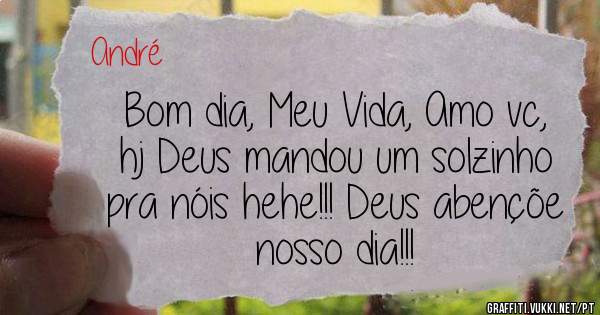 André
Bom dia, Meu Vida, Amo vc,
hj Deus mandou um solzinho
pra nóis hehe!!! Deus abençõe
nosso dia!!!
GRAFFITI.VUKKI.NET/PT